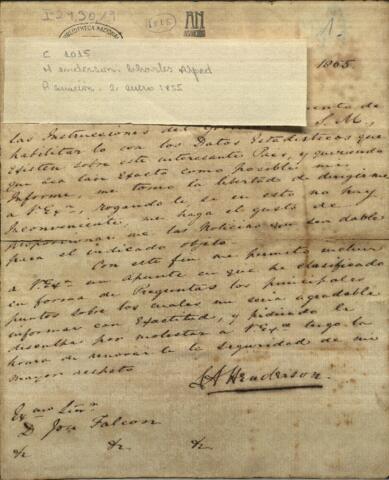 I-29,30,19
BIBLIOTHECA NACIONAL
1015
AN
ASUNCION
1.
C 1015
Henderson, Charles Alfred
Asunción, 2 enero 1855
1865
las Instrucciones del
S. M.,
habilitarlo con los Datos Estadísticos que
existen sobre este interesante País, y queriendo
que sea tan Exacto como posible mi
Informe, me tomo la libertad de dirigirme
a V. Exª, rogandole, si en esto no hay
Inconveniente, me haga el gusto de
proporcionarme las Noticias que sea dable
para el indicado objeto.
Con este fin me permito incluir
a V. Exª un Apunte en que he clasificado
en forma de Preguntas los principales
puntos sobre los cuales me sera agradable
informar con Exactitud, y pidiendole
disculpe por molestar a V. Exª tengo la
honra de renovarle la seguridad de mi
mayor respeto
C A Henderson.
Exmo Señr
D José Falcon
&c &c &c